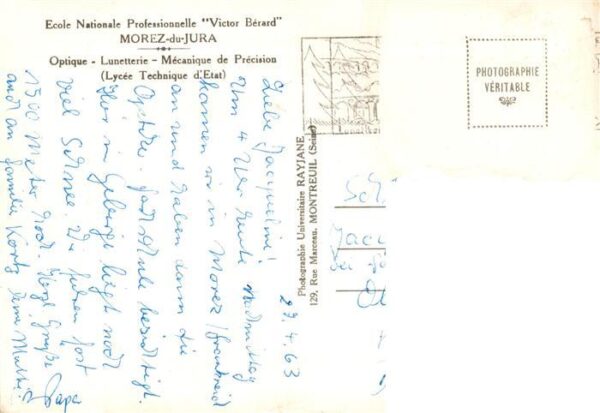 Ecole Nationale Professionnelle "Victor Bérard"
MOREZ-du-JURA
Optique - Lunetterie - Mécanique de Précision
(Lycée Technique d'Etat)
PHOTOGRAPHIE
VÉRITABLE
Photographie Universitaire RAYJANE
129, Rue Marceau, MONTREUIL (Seine)
29.4.63
Liebe Jacqueline!
Um 4 Uhr heute nachmittag
kamen wir in Morez/Frankreich
an und haben dann die
Optiker-Fachschule besichtigt.
Hier in Gebirge liegt noch
viel Schnee. Wir fast
1300 Meter hoch. Herzl. Grüße
Papa
auch an Familie Kortz